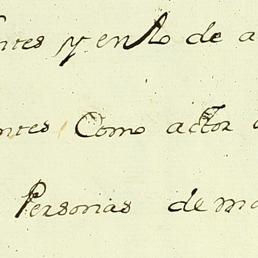 ntes y en lo de a
ntes Como actor
Personas de ma